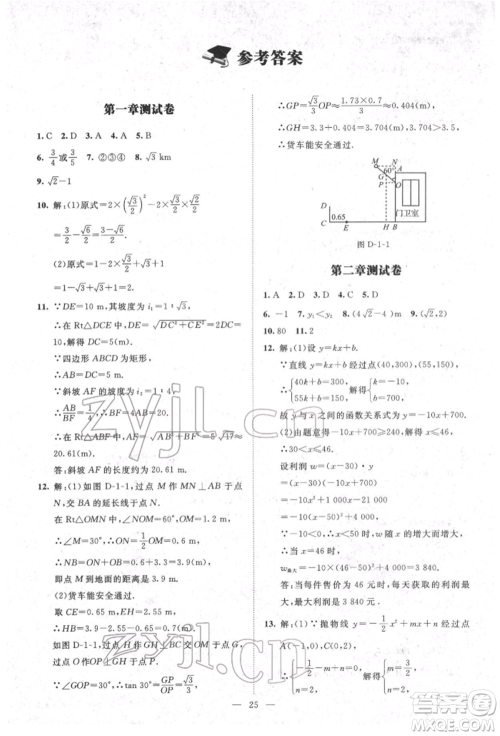 参考答案
第一章测试卷
1. C 2. D 3. A 4. A 5. B
6. 3/4或3/5 7. ②③④ 8. √3 km
9. √2－1
10. 解:(1)原式＝2×(√3/2)²－2×√3/2×√2/2
＝2×3/4－√6/2＝3/2－√6/2＝(3－√6)/2.
(2)原式＝1－√2/2×2√3＋√3
＝1－√6＋√3.
11. ∵DE＝10 m，其坡度为 i₁＝1:√3，
∴在 Rt△DCE 中，DE＝√(DC²＋CE²)＝2DC＝10，
∴DC＝5.
∵四边形 ABCD 为矩形，
∴AB＝CD＝5.
∵斜坡 AF 的坡度为 i₂＝1:4，
∴AB/BF＝1/4，∴BF＝4AB＝20，
∴在 Rt△ABF 中，AF＝√(AB²＋BF²)＝5√17≈
20.61(m).
答：斜坡 AF 的长度为 20.61 m.
12. 解:(1)如图 D-1-1，过点 M 作 MN⊥AB 于点 N，
交 BA 的延长线于点 N.
在 Rt△OMN 中，∠NOM＝60°，OM＝1.2，
∴∠M＝30°，∴ON＝1/2 OM＝0.6，
∴NB＝ON＋OB＝3.3＋0.6＝3.9.
即点 M 到地面的距离是 3.9 m.
(2)取 CE＝0.65 m，EH＝2.55 m，
∴HB＝3.9－2.55－0.65＝0.7(m).
如图 D-1-1，过点 H 作 GH⊥BC，交 OM 于点
G，过点 O 作 OP⊥GH 于点 P.
∵∠GOP＝30°，∴tan 30°＝GP/OP＝√3/3，
∴GP＝√3/3 OP＝(1.73×0.7)/3≈0.404(m)，
∴GH＝3.3＋0.404＝3.704(m)＞3.5(m)，
∴货车能安全通过.
答：货车能安全通过.
M N
G 60° A
P O
门卫室
D
0.65
C E H B
图 D-1-1
第二章测试卷
1. A 2. B 3. C 4. A 5. D
6. －1 7. y₁＜y₂ 8. (4√2－4) m 9. (√2,2)
10. 80 11. 2
12. 解:(1)设 y＝kx＋b.
∵直线 y＝kx＋b 经过点(40,300)，(55,150)，
∴{40k＋b＝300, 55k＋b＝150, 解得{k＝－10, b＝700.
故 y 与 x 之间的函数关系式为 y＝－10x＋700.
(2)由题意，得－10x＋700≥240，解得 x≤46，
∴30＜x≤46.
设利润 w＝(x－30)·y
＝(x－30)(－10x＋700)
＝－10x²＋1000x－21000
＝－10(x－50)²＋4000.
∵－10＜0，∴x＜50 时，w 随 x 的增大而增大，
∴当 x＝46 时，
w最大＝－10×(46－50)²＋4000＝3840.
答：当销售单价为 46 元时，每天获取的利润最
大，最大利润是 3 840 元.
13. 解:(1)∵抛物线 y＝－1/2 x²＋mx＋n 经过点
A(－1,0)，C(0,2)，
∴{－1/2－m＋n＝0, n＝2, 解得{m＝3/2, n＝2,
25
zyjl.cn
zyjl.cn
作业精灵
答案圈